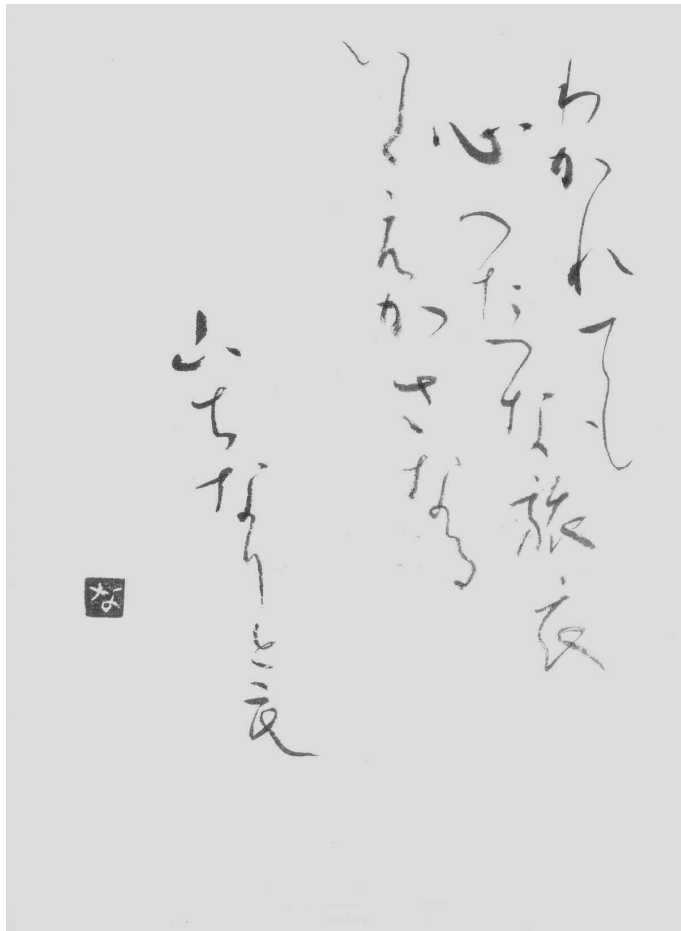 わかれても
心へたつな旅衣
いくえかさなる
山ちなりとも
な